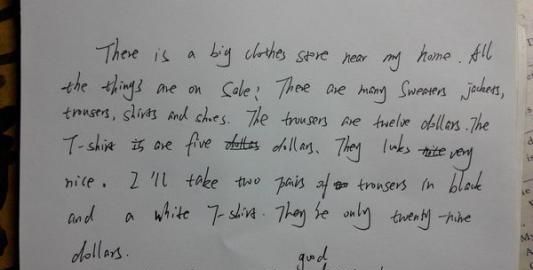 There is a big clothes store near my home. All
the things are on Sale! There are many Sweaters, jackets,
trousers, shirts and shoes. The trousers are twelve dollars. The
T-shirt is are five dollars. They looks nice very
nice. I'll take two pairs of trousers in black
and a white T-shirt. They're only twenty-nine
dollars.
good